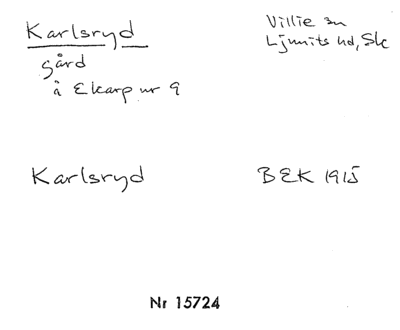 Karlsryd
Villie sn
Ljunits hd, Sk
gård
å Ekarp nr 9
Karlsryd
BEK 1915
Nr 15724